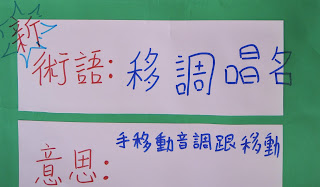 新
術語：移調唱名
意思：手移動音調跟移動